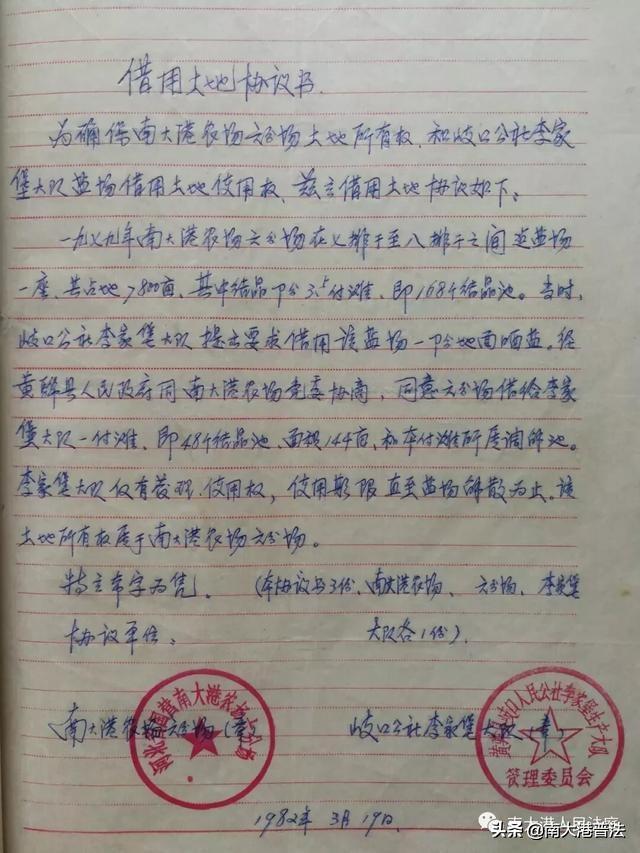 借用土地协议书
为确保南大港农场六分场土地所有权,和歧口公社李家
堡大队盐场借用土地使用权,兹立借用土地协议如下:
一九七九年南大港农场六分场在七排干至八排干之间 盐场
一座,共占地7800亩,其中结晶部分3.5付滩,即168个结晶池。当时,
歧口公社李家堡大队提出要求借用该盐场一部分地面晒盐。经
黄骅县人民政府同南大港农场党委协商,同意六分场借给李家
堡大队一付滩,即48个结晶池,面积144亩,和本付滩所属调节池。
李家堡大队仅有管理、使用权,使用期限直至盐场解散为止。该
土地所有权属于南大港农场六分场。
特立本字为凭。(本协议书3份,南大港农场、六分场、李家堡
协议单位: 大队各1份)。
南大港农场六分场(章) 歧口公社李家堡大队(章)
国营南大港农场六分场
黄骅县歧口人民公社李家堡生产大队
管理委员会
1982年3月19日.
南大港人民法庭
头条@南大港普法